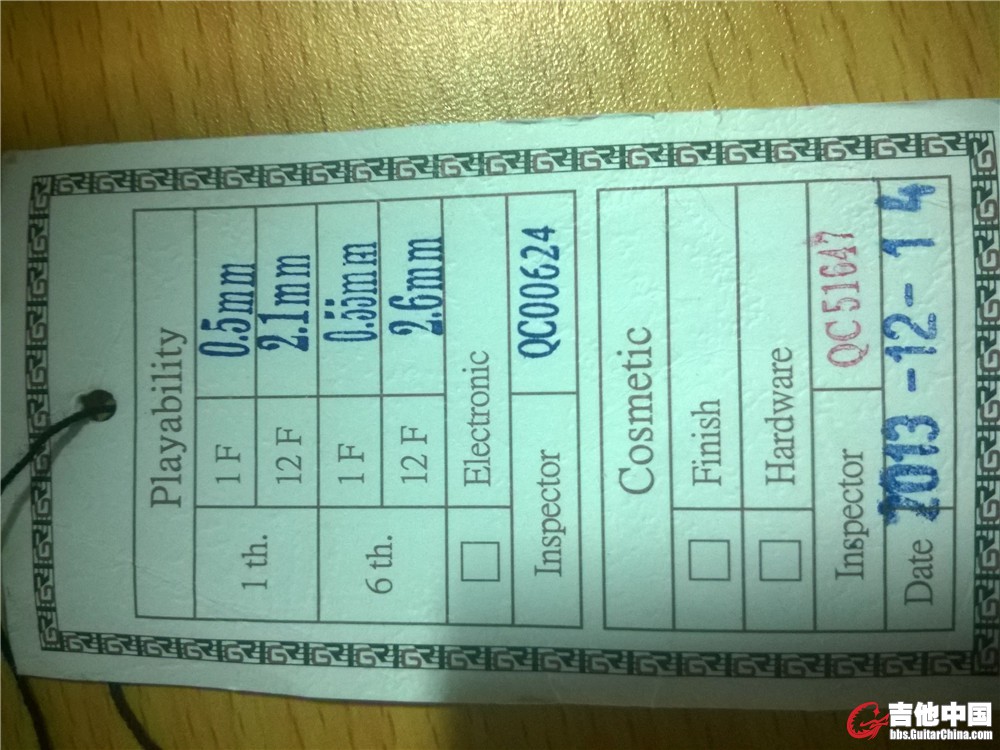 Playability
1 th. 1 F 0.5mm
12 F 2.1mm
6 th. 1 F 0.55mm
12 F 2.6mm
Electronic
Inspector QC00624
Cosmetic
Finish
Hardware
Inspector QC51647
Date 2013-12-14
吉他中国
bbs.GuitarChina.com